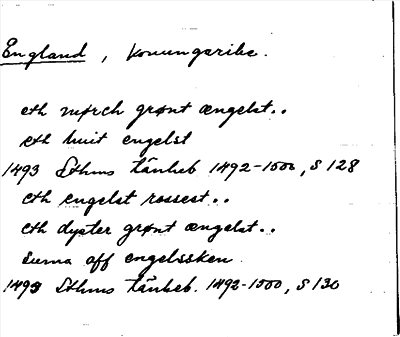 England, konungarike.
eth mørch grønt ængelst..
eth huit engelst
1493 Sthms tänkeb 1492-1500, S 128
eth engelst rossest..
eth dyster grønt ængelst..
suma off engelssken
1493 Sthms tänkeb. 1492-1500, S 130